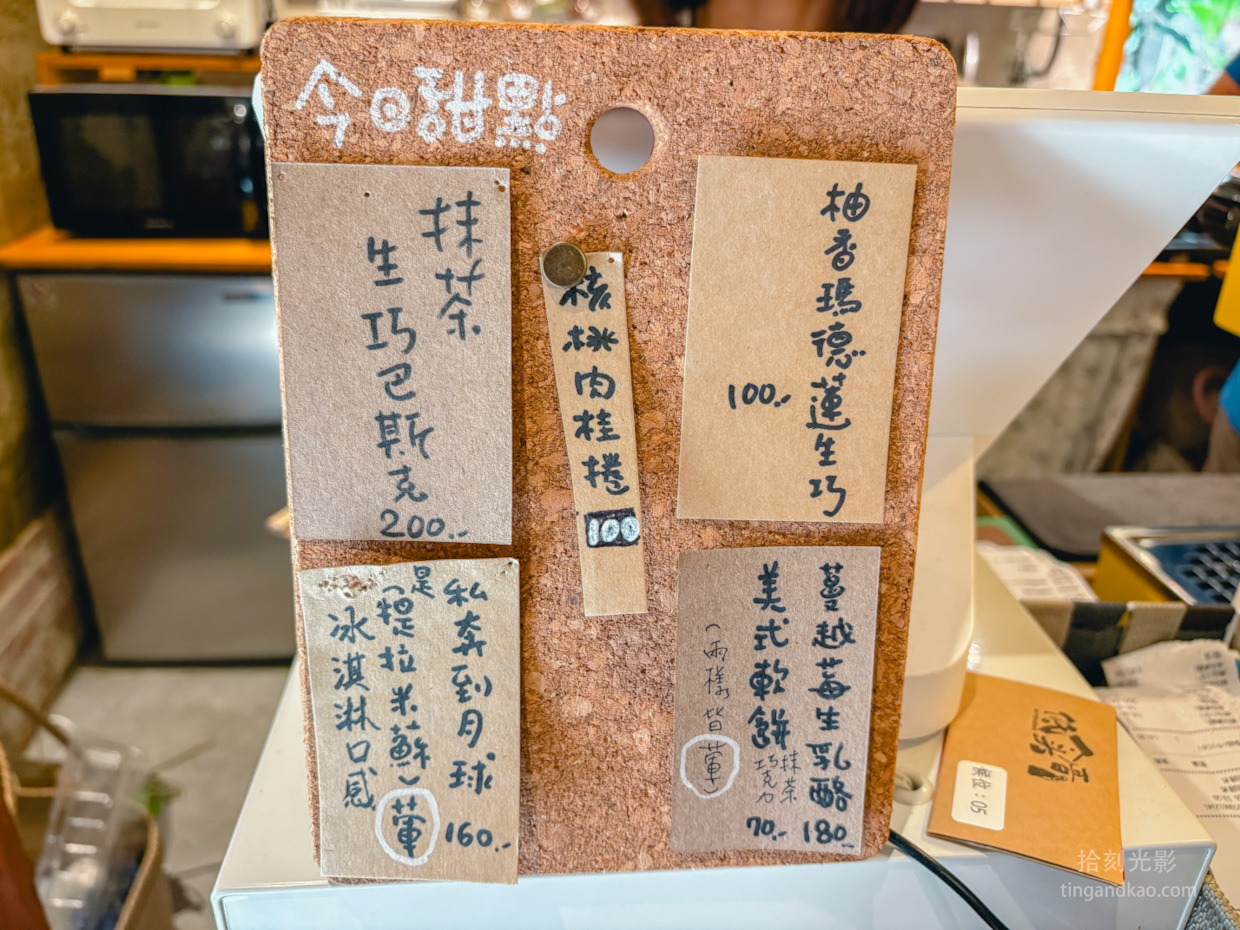 今日甜點
抹茶
生巧巴斯克
200..
核桃肉桂捲
100
柚香瑪德蓮生巧
100..
私奔到月球
160..
(是提拉米蘇)葷
冰淇淋口感
蔓越莓生乳酪
180..
美式軟餅
抹茶
巧克力
70..
(兩樣皆葷)
候位:05
拾刻光影
tingandkao.com